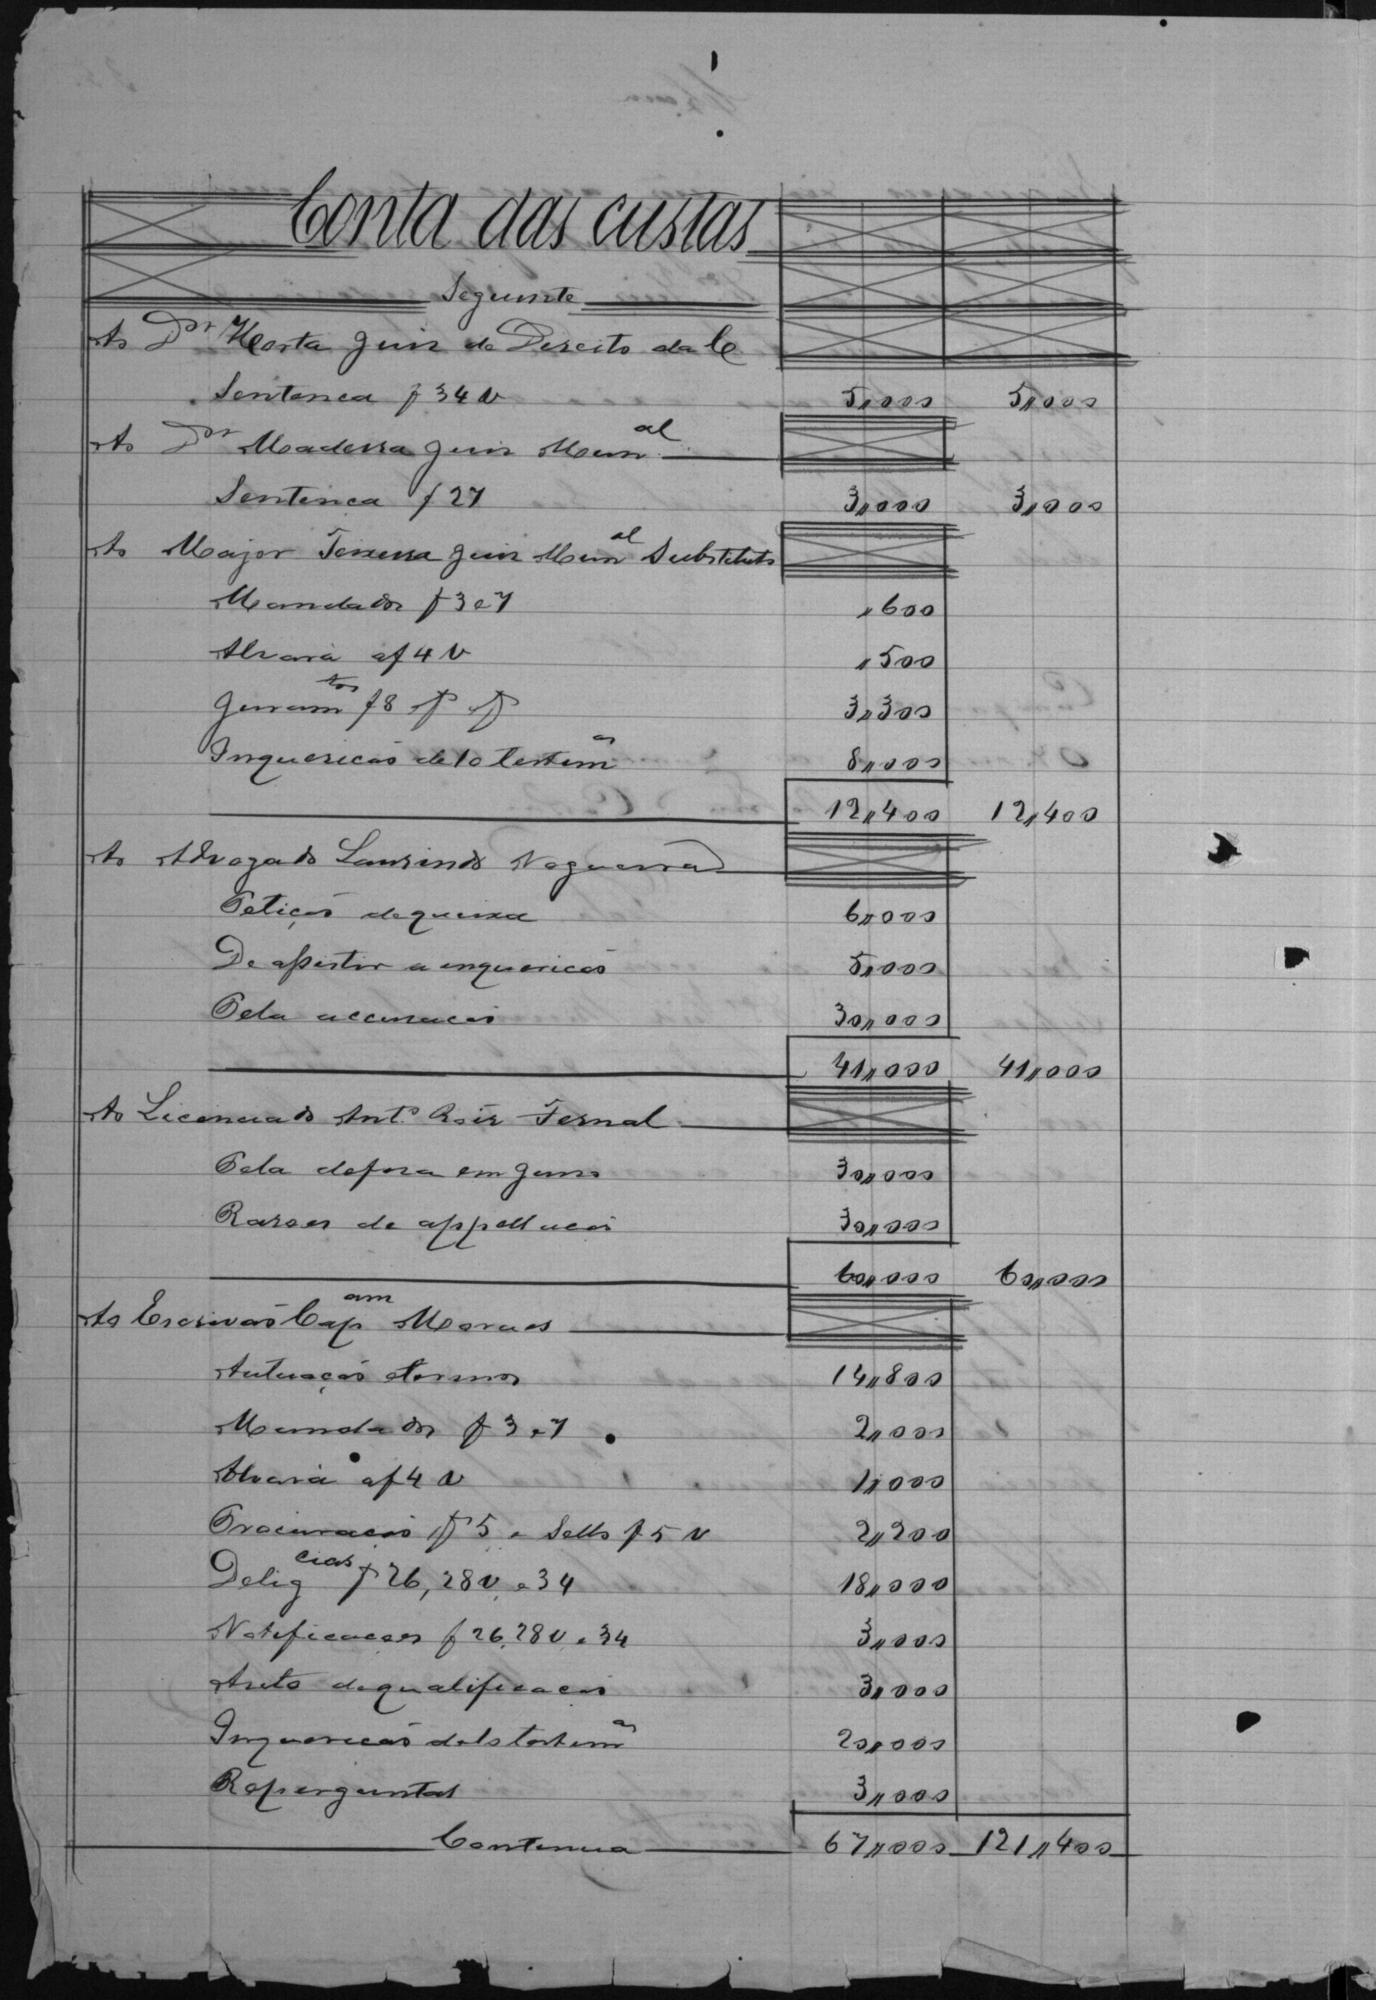 Conta das custas
Seguinte
Ao Dor Horta Juiz de Direito da C
Sentenca f 34 v 5,,000 5,,000
Ao Dor Madeira Juiz Munal
Sentenca f 27 3,,000 3,,000
Ao Major Teixeira Juiz Munal Substituto
Mandados f 3 e 7 ,,600
Alvará af 4 v ,,500
Juramtos f 8 3,,300
Inquericão de 10 testemas 8,,000
12,,400 12,,400
Ao Advogado Laurindo Nogueira
Petição de queixa 6,,000
De assistir a enquericão 5,,000
Pela accusacão 30,,000
41,,000 41,,000
Ao Licenciado Anto Roiz Fernal
Pela defesa em Juiso 30,,000
Rasoes de appellacão 30,,000
60,,000 60,,000
Ao Escrivão Capam Moraes
Autuação e termos 14,,800
Mandados f 3 e 7 2,,000
Alvará af 4 v 1,,000
Procuracão f 5 e Sello f 5 v 2,,200
Deligcias f 26, 28 v, e 34 18,,000
Notificacoes f 26, 28 v e 34 3,,000
Auto de qualificacão 3,,000
Inquericão de 10 testemas 20,,000
Reperguntas 3,,000
Continua 67,,000 121,,400